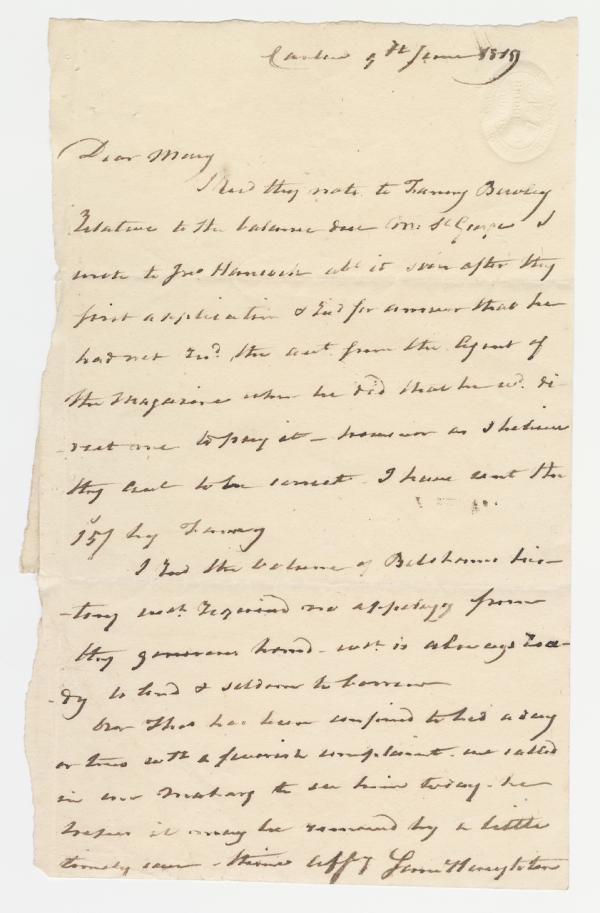 Carlow 9th June 1819
Dear Mary
I Recd thy note to Fanny
Relative to the balance due Mrs St George I
wrote to Jno Hancock abt it soon after thy
first application & Recd for answer that he
had not Recd. the acct. from the Agent of
the Magazine when he did that he wd. di-
-rect me to pay it - however as I believe
thy acct to be correct - I have sent the
15/ by Fanny
I Recd the volume of Belshams his-
-tory wch. required no appology from
thy generous hand - wch. is always Rea-
-dy to lend & seldom to borrow
Our Thos has been confined to bed a day
or two with a feverish complaint - we called
in to see him today - he
hopes it may be removed by a little
timely care - thine affy Haughton